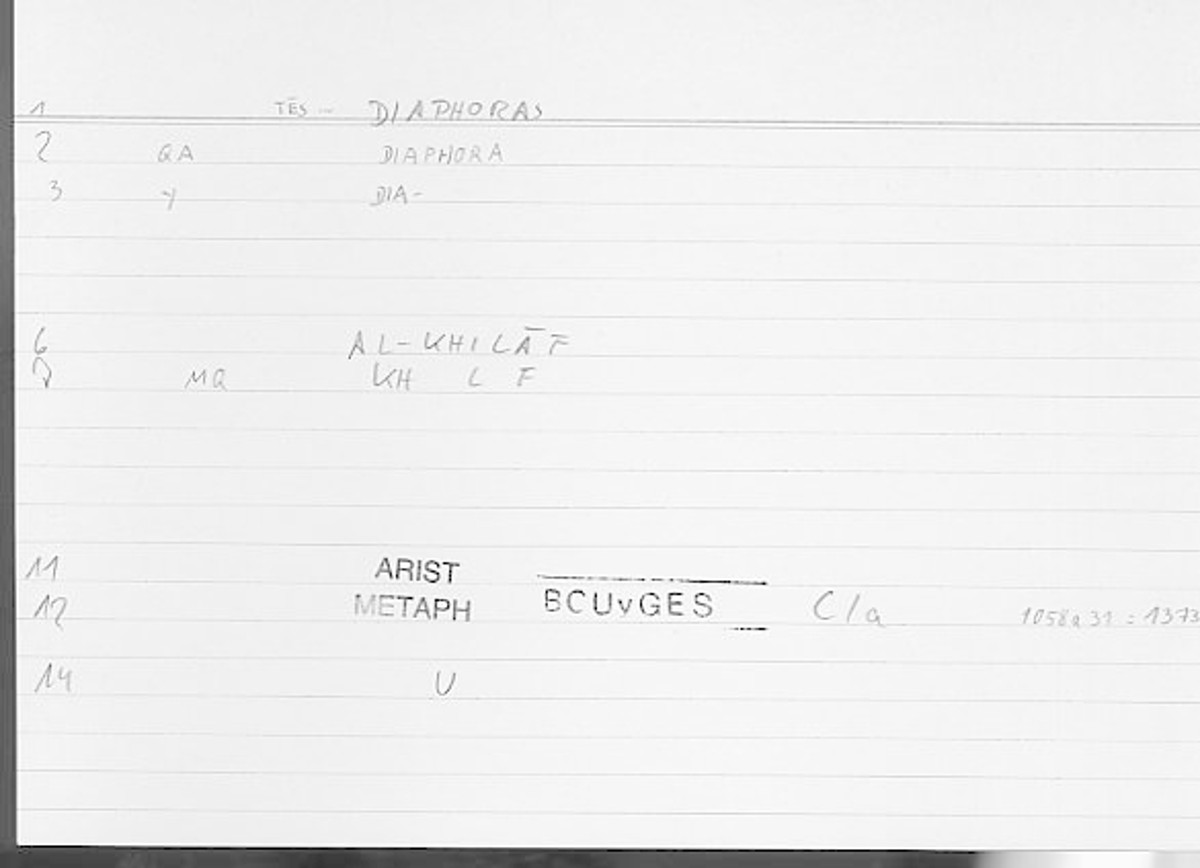 1 TĒS – DIAPHORAS
2 QA DIAPHORA
3 Y DIA-
6 AL-KHILĀF
MQ KH L F
11 ARIST
12 METAPH BCUvGES C/a 1058a31 : 1373
14 U